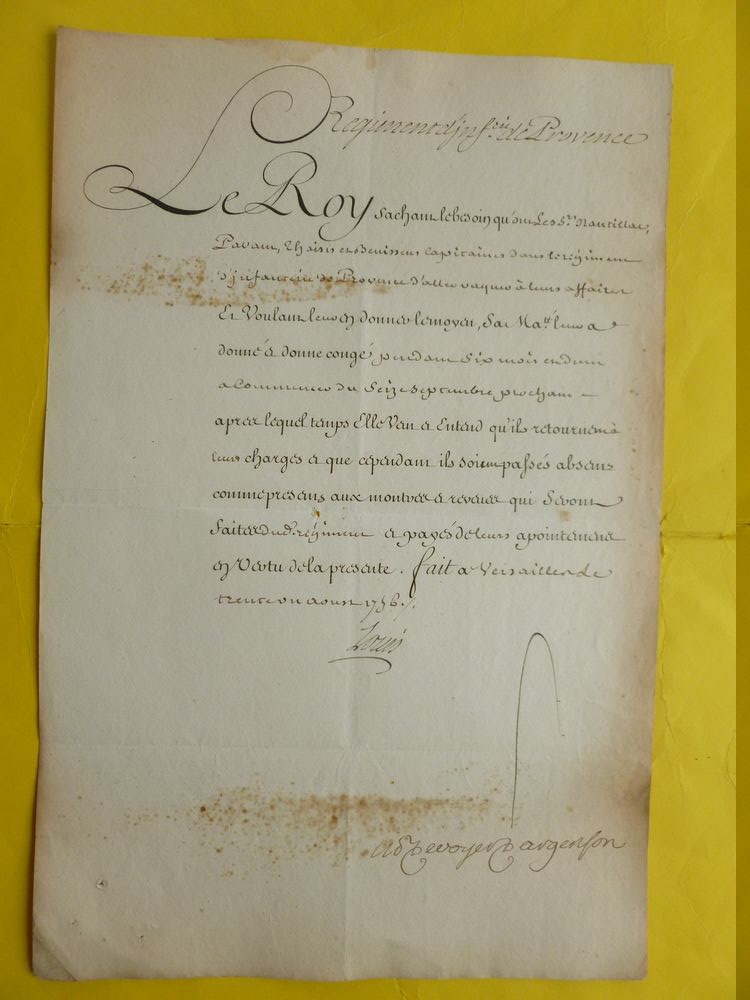 Regiment d'Infrie de Provence
Le Roy sachant le besoin qu'ont Les Srs Nantillac,
Pavant, et dans le regiment
d'Infanterie de Provence d'aller vaquer à leurs affaires
Et Voulant leur en donner le moyen, Sa Maté leur a
donné & donne congé pendant Six mois et demi
a commencer du Seize Septembre prochain
apres lequel temps Elle Veut & Entend qu'ils retournent à
leurs charges & que cependant ils soient passés absens
comme presens aux montres & reveues qui Seront
faites dud. regiment & payés de leurs apointemens
en Vertu de la presente. fait a Versailles Le
trente un aoust 1756 ./.
Louis
M de Voyer D argenson